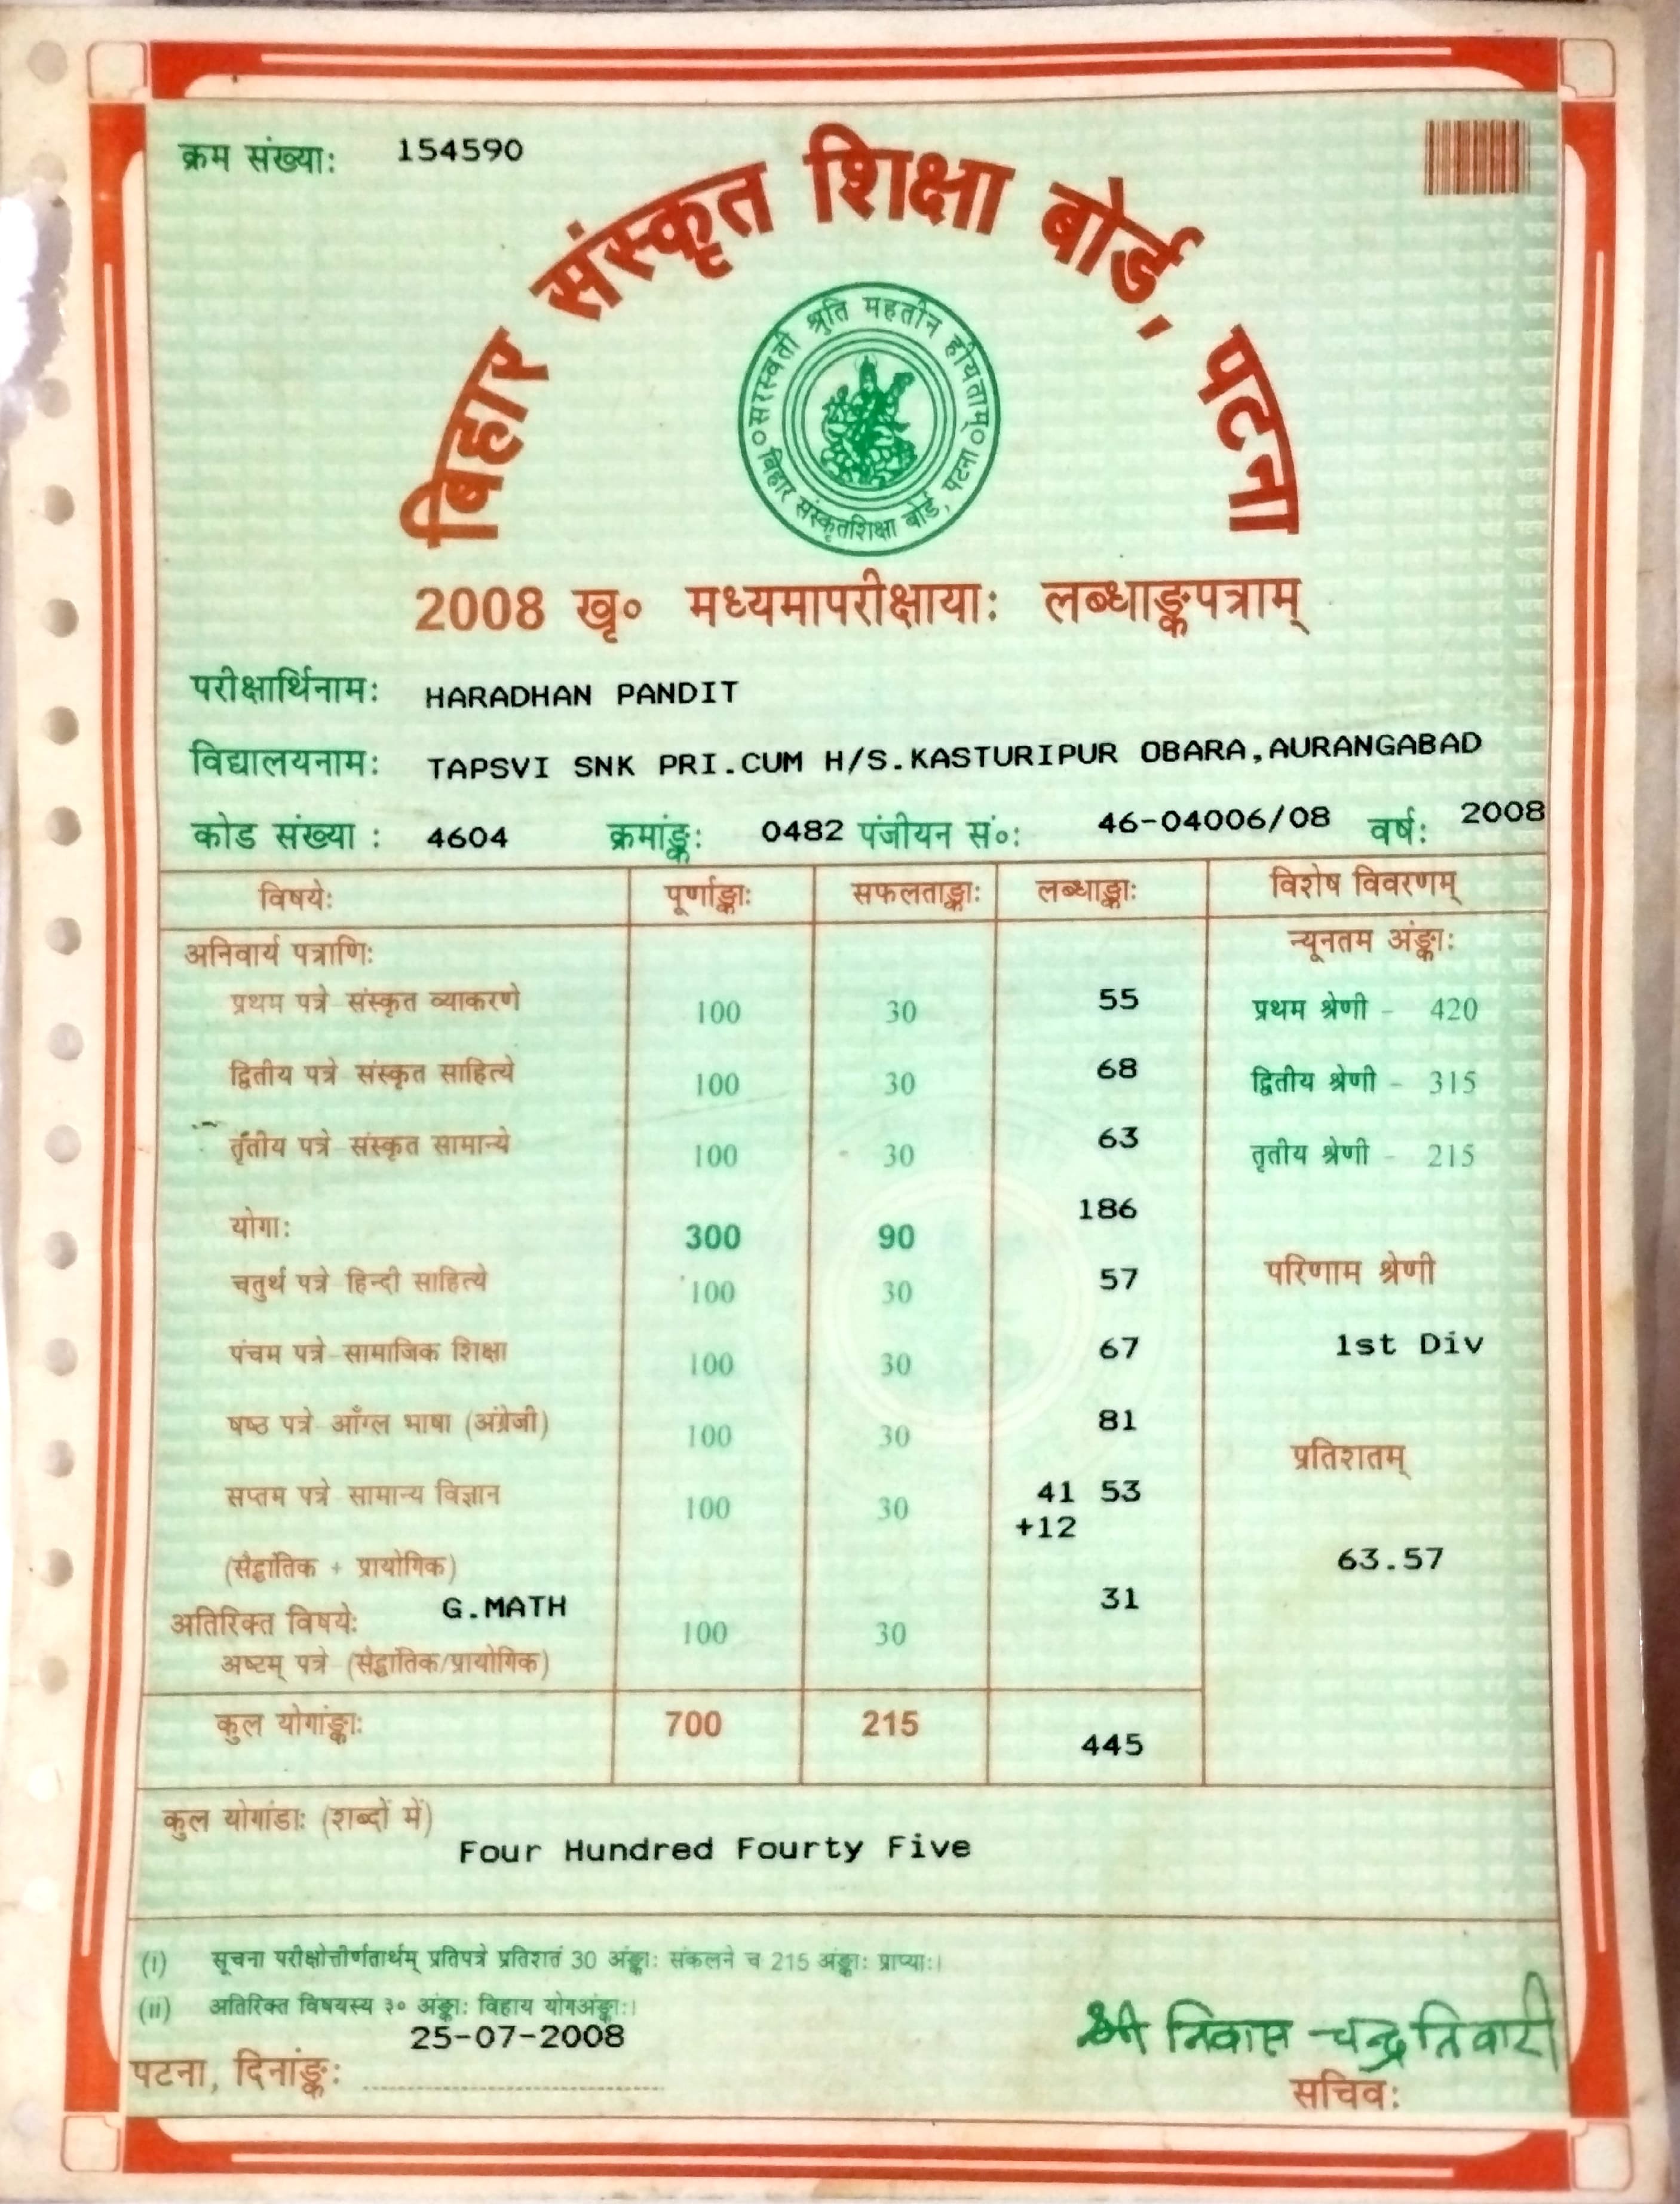 क्रम संख्या: 154590
बिहार संस्कृत शिक्षा बोर्ड, पटना
सरस्वती श्रुति महतीन हीयताम्
बिहार संस्कृतशिक्षा बोर्ड, पटना
2008 खृ० मध्यमापरीक्षायाः लब्धाङ्कपत्राम्
परीक्षार्थिनामः HARADHAN PANDIT
विद्यालयनामः TAPSVI SNK PRI.CUM H/S.KASTURIPUR OBARA,AURANGABAD
कोड संख्या : 4604 क्रमांङ्कः 0482 पंजीयन सं०: 46-04006/08 वर्षः 2008
विषयेः पूर्णाङ्काः सफलताङ्काः लब्धाङ्काः विशेष विवरणम्
अनिवार्य पत्राणिः न्यूनतम अंङ्काः
प्रथम पत्रे संस्कृत व्याकरणे 100 30 55 प्रथम श्रेणी - 420
द्वितीय पत्रे संस्कृत साहित्ये 100 30 68 द्वितीय श्रेणी - 315
तृतीय पत्रे संस्कृत सामान्ये 100 30 63 तृतीय श्रेणी - 215
योगाः 300 90 186
चतुर्थ पत्रे हिन्दी साहित्ये 100 30 57 परिणाम श्रेणी
पंचम पत्रे सामाजिक शिक्षा 100 30 67 1st Div
षष्ठ पत्रे आँग्ल भाषा (अंग्रेजी) 100 30 81
प्रतिशतम्
सप्तम पत्रे सामान्य विज्ञान 100 30 41 53
+12
(सैद्धांतिक + प्रायोगिक) 63.57
अतिरिक्त विषयेः G.MATH 100 30 31
अष्टम् पत्रे (सैद्धांतिक/प्रायोगिक)
कुल योगांङ्काः 700 215 445
कुल योगांडाः (शब्दों में)
Four Hundred Fourty Five
(i) सूचना परीक्षोत्तीर्णतार्थम् प्रतिपत्रे प्रतिशतं 30 अंङ्काः संकलने च 215 अंङ्काः प्राप्याः।
(ii) अतिरिक्त विषयस्य ३० अंङ्काः विहाय योगअंङ्काः।
25-07-2008
पटना, दिनांङ्कः
श्री निवास चन्द्र तिवारी
सचिवः